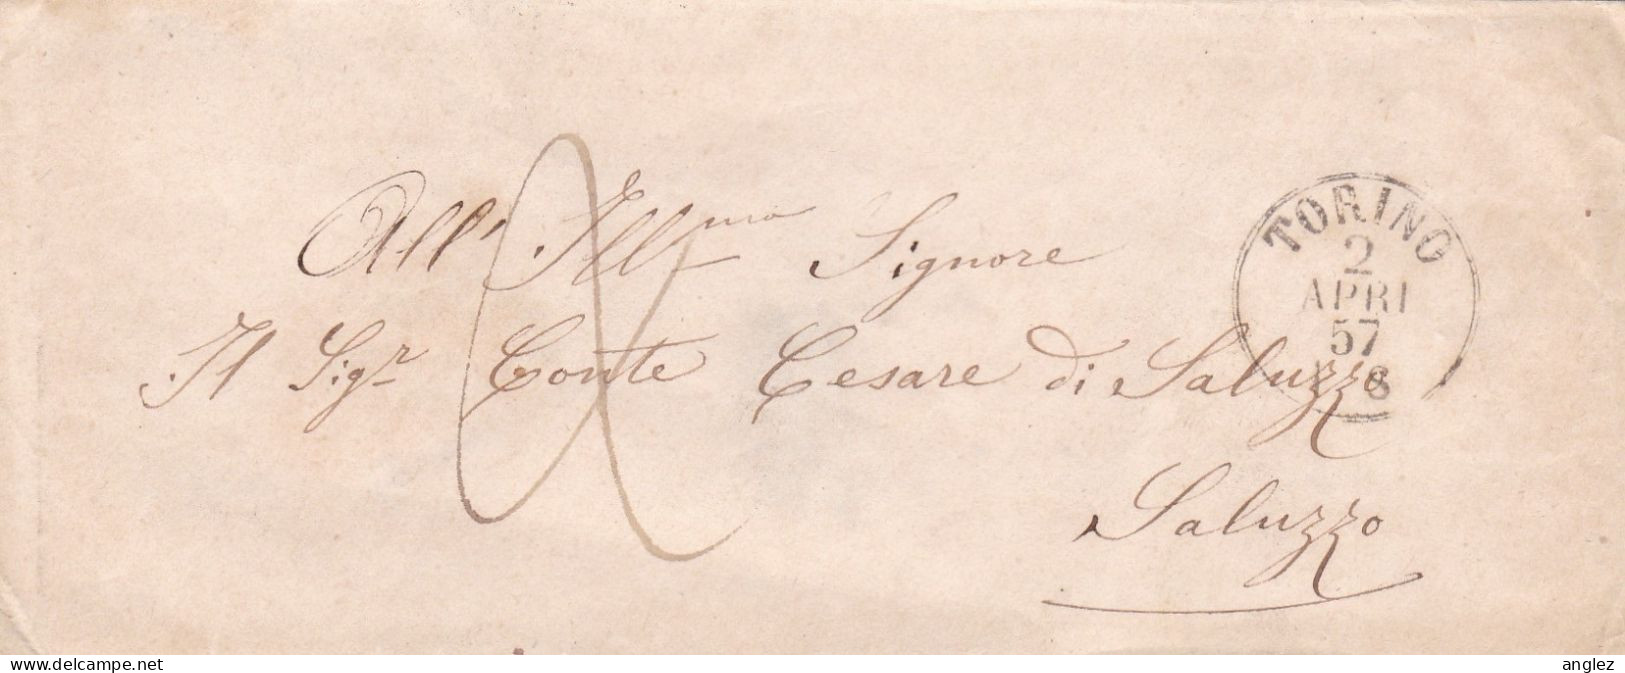 All' Ill.mo Signore
Il Sig.r Conte Cesare di Saluzzo
Saluzzo
TORINO
2
APRI
57
8
www.delcampe.net
anglez